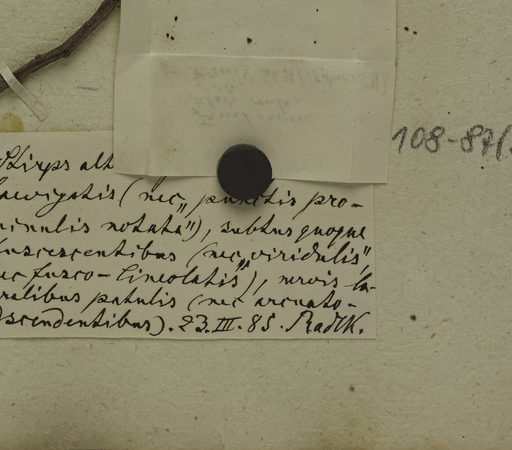 Stirps alt
laevigatis (nec "punctis pro-
minulis notata"), subtus quoque
fuscescentibus (nec "viridulis",
nec fusco-lineolatis"), nervis la-
teralibus patulis (nec arcuato-
adscendentibus). 23.III.85. Radlk.
108-87(